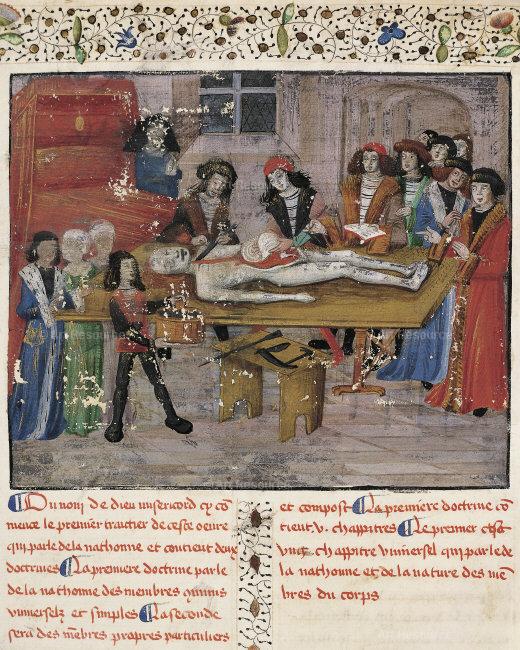 Du nom de dieu misericord cy cõ
mence le premier traittier de ceste oeure
qui parle de la nathomie et contient deux
doctrines La premiere doctrine parle
de la nathomie des membres quiuns
vniuerselz et simples La seconde
sera des mẽbres propres particuliers
et compost La premiere doctrine cõ
tient v. chappitres Le premier est
vng chappitre vniuersel qui parle de
la nathomie et de la nature des mẽ
bres du corps